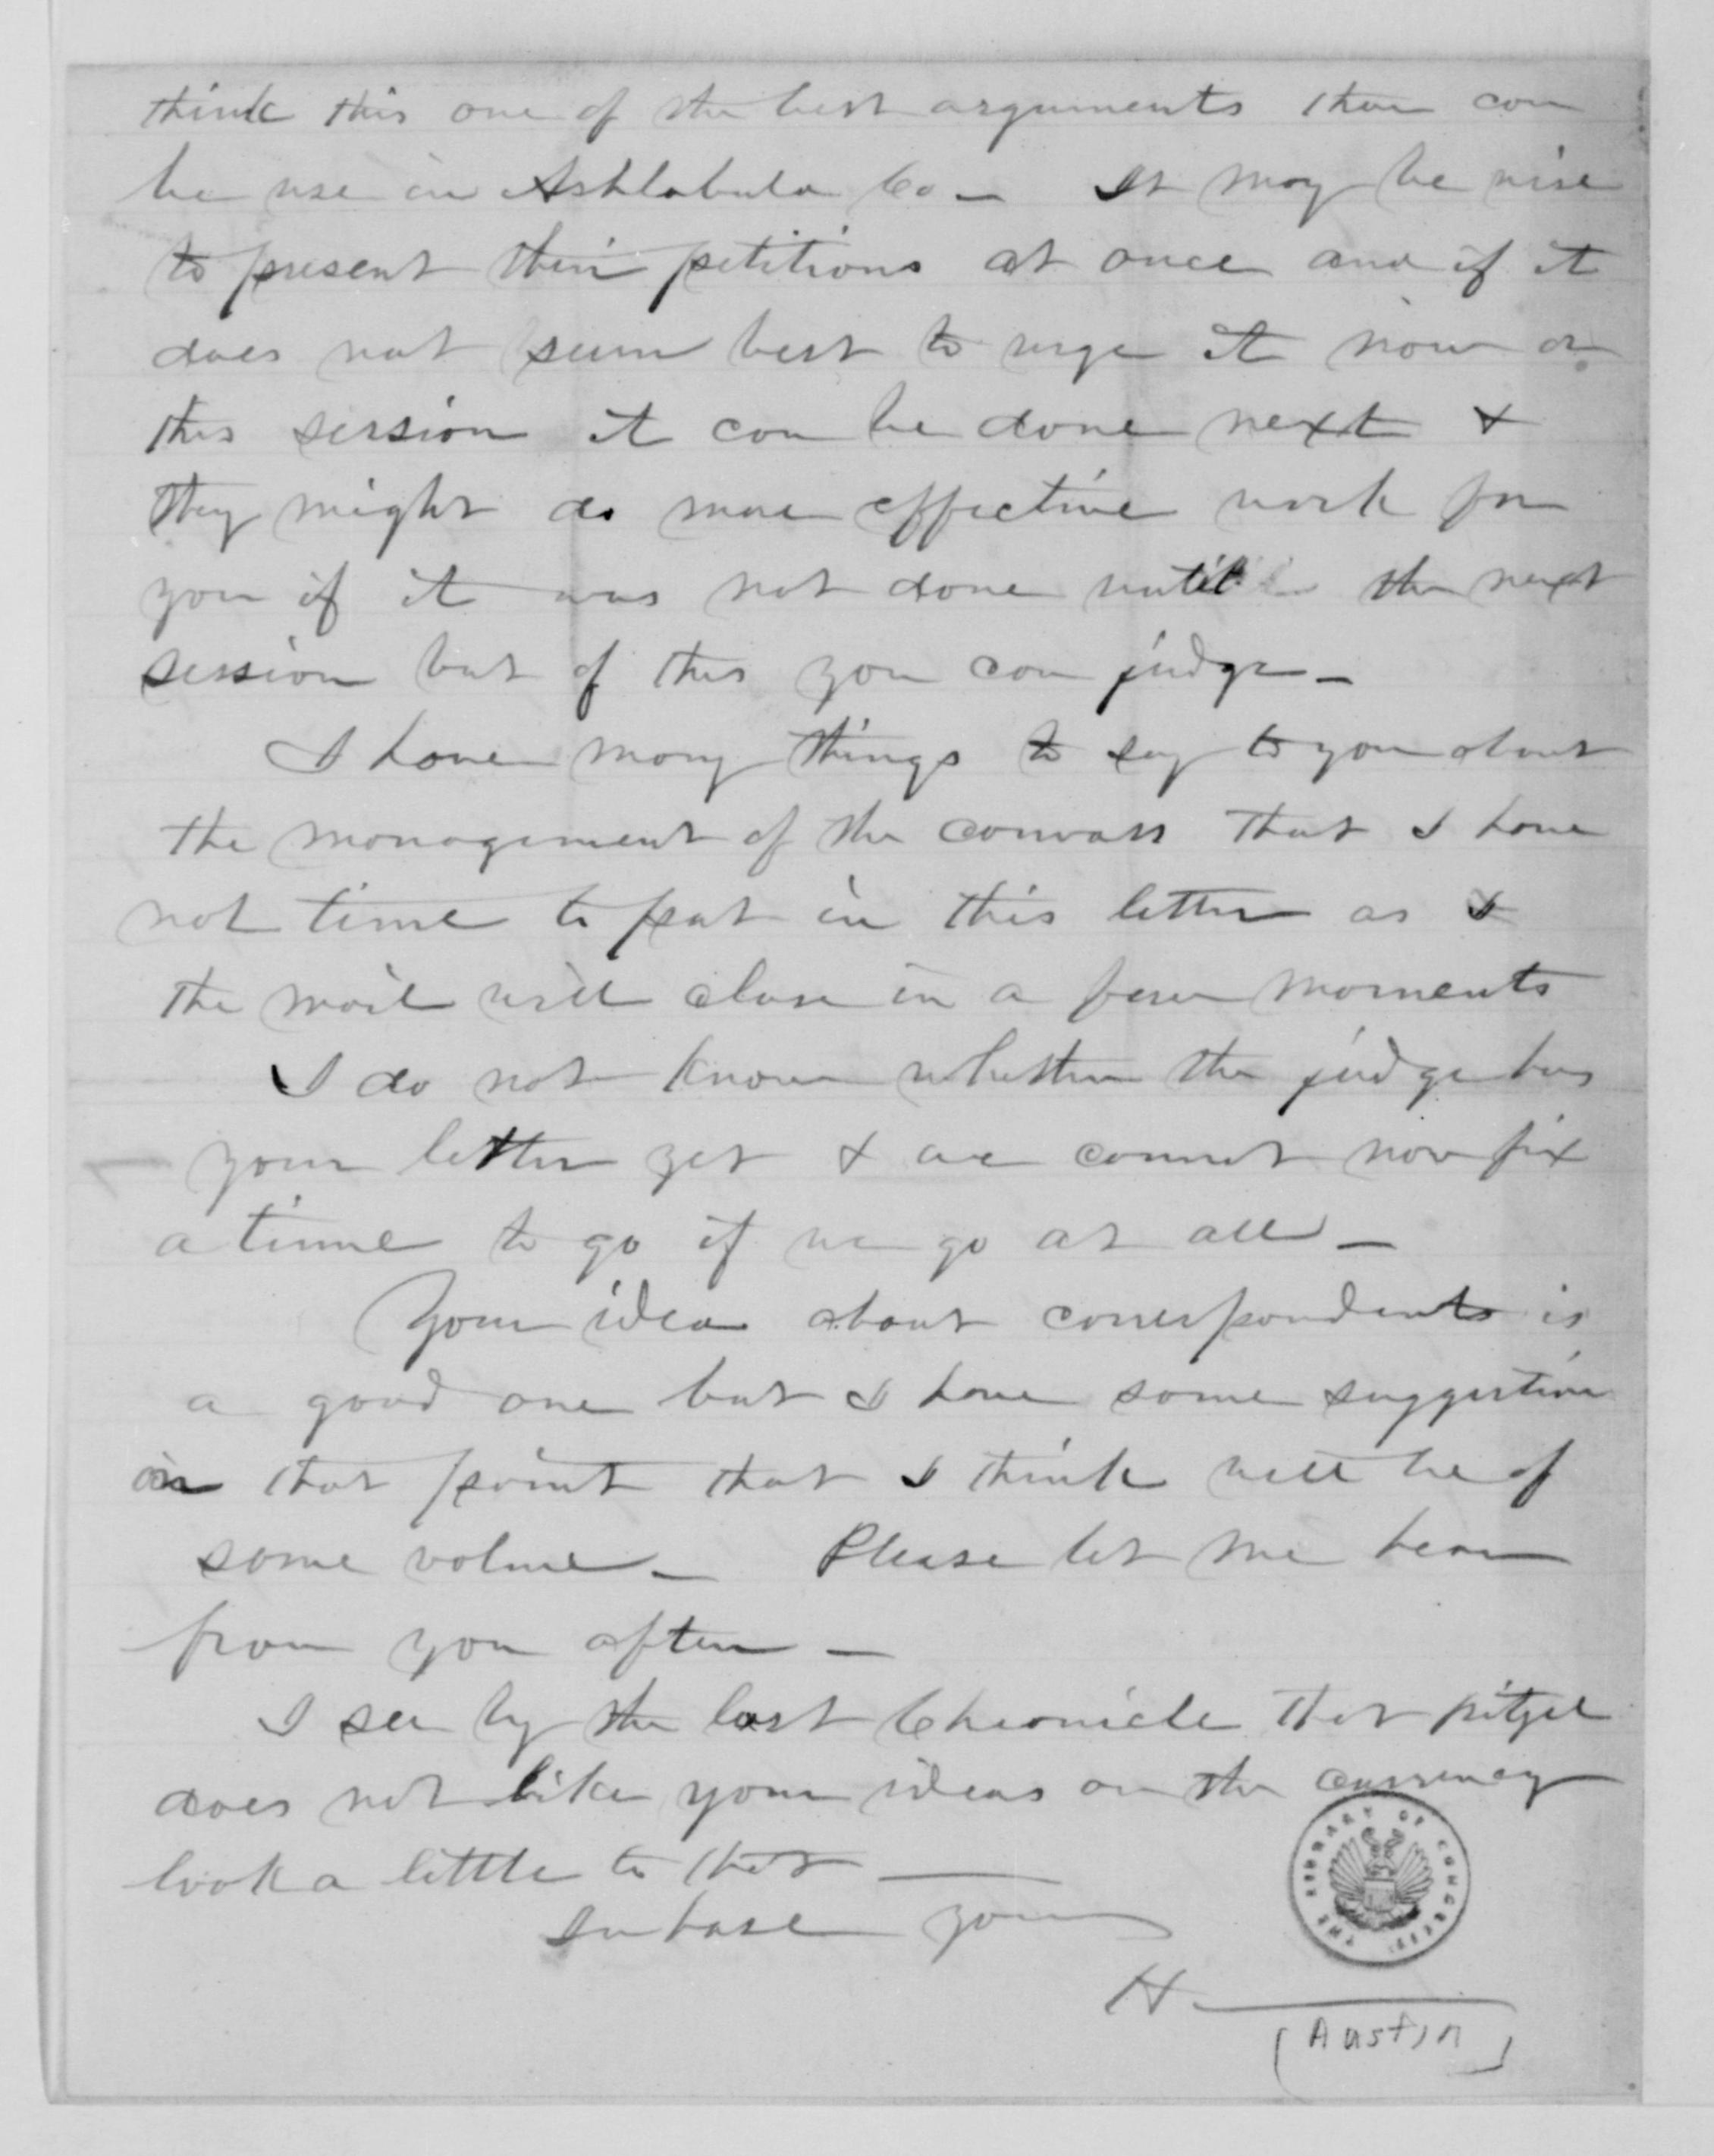 think this one of the best arguments that can
be use in Ashtabula Co — It may be wise
to present their petitions at once and if it
does not seem best to urge it now or
this session it can be done next &
they might do more effective work for
you if it was not done until the next
session but of this you can judge —
I have many things to say to you about
the management of the canvass that I have
not time to put in this letter as I
the mail will close in a few moments
I do not know whether the judge has
your letter yet & we cannot now fix
a time to go if we go at all —
Your idea about correspondents is
a good one but I have some suggestion
on that point that I think will be of
some value — Please let me hear
from you often —
I see by the last Chronicle that
does not like your ideas on the currency
look a little to that —
In haste yours
H —
[Austin]
THE LIBRARY OF CONGRESS